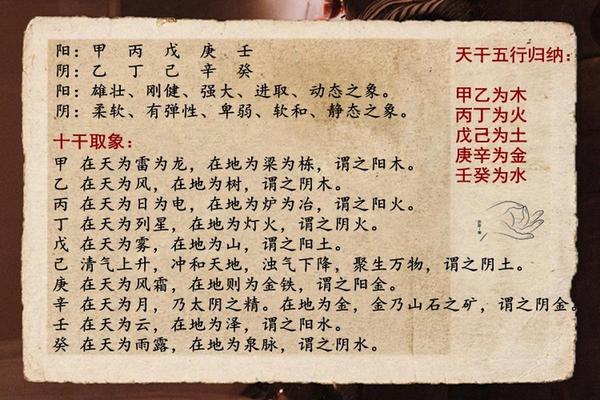 阳：甲 丙 戊 庚 壬
阴：乙 丁 己 辛 癸
阳：雄壮、刚健、强大、进取、动态之象。
阴：柔软、有弹性、卑弱、软和、静态之象。
十干取象：
甲 在天为雷为龙，在地为梁为栋，谓之阳木。
乙 在天为风，在地为树，谓之阴木。
丙 在天为日为电，在地为炉为冶，谓之阳火。
丁 在天为列星，在地为灯火，谓之阴火。
戊 在天为雾，在地为山，谓之阳土。
己 清气上升，冲和天地，浊气下降，聚生万物，谓之阴土。
庚 在天为风霜，在地则为金铁，谓之阳金。
辛 在天为月，乃太阴之精。在地为金，金乃山石之矿，谓之阴金。
壬 在天为云，在地为泽，谓之阳水。
癸 在天为雨露，在地为泉脉，谓之阴水。
天干五行归纳：
甲乙为木
丙丁为火
戊己为土
庚辛为金
壬癸为水